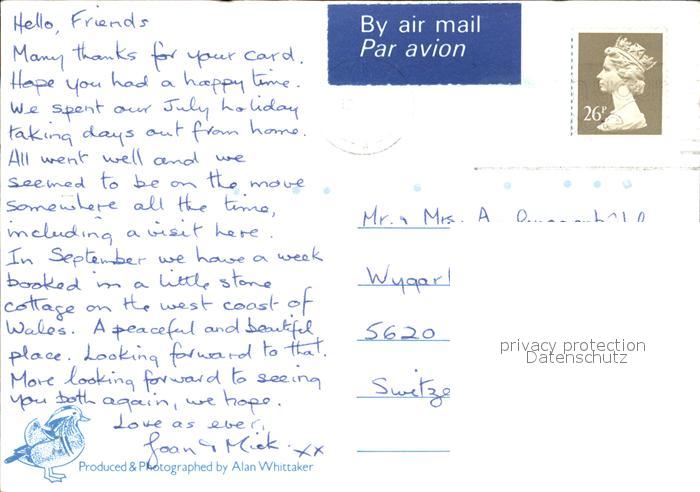 Hello, Friends
Many thanks for your card.
Hope you had a happy time.
We spent our July holiday
taking days out from home.
All went well and we
seemed to be on the move
somewhere all the time,
including a visit here.
In September we have a week
booked in a little stone
cottage on the west coast of
Wales. A peaceful and beautiful
place. Looking forward to that.
More looking forward to seeing
you both again, we hope.
Love as ever,
Joan & Mick. xx
Produced & Photographed by Alan Whittaker
By air mail
Par avion
26P
Mr. & Mrs. A.
5620
privacy protection
Datenschutz